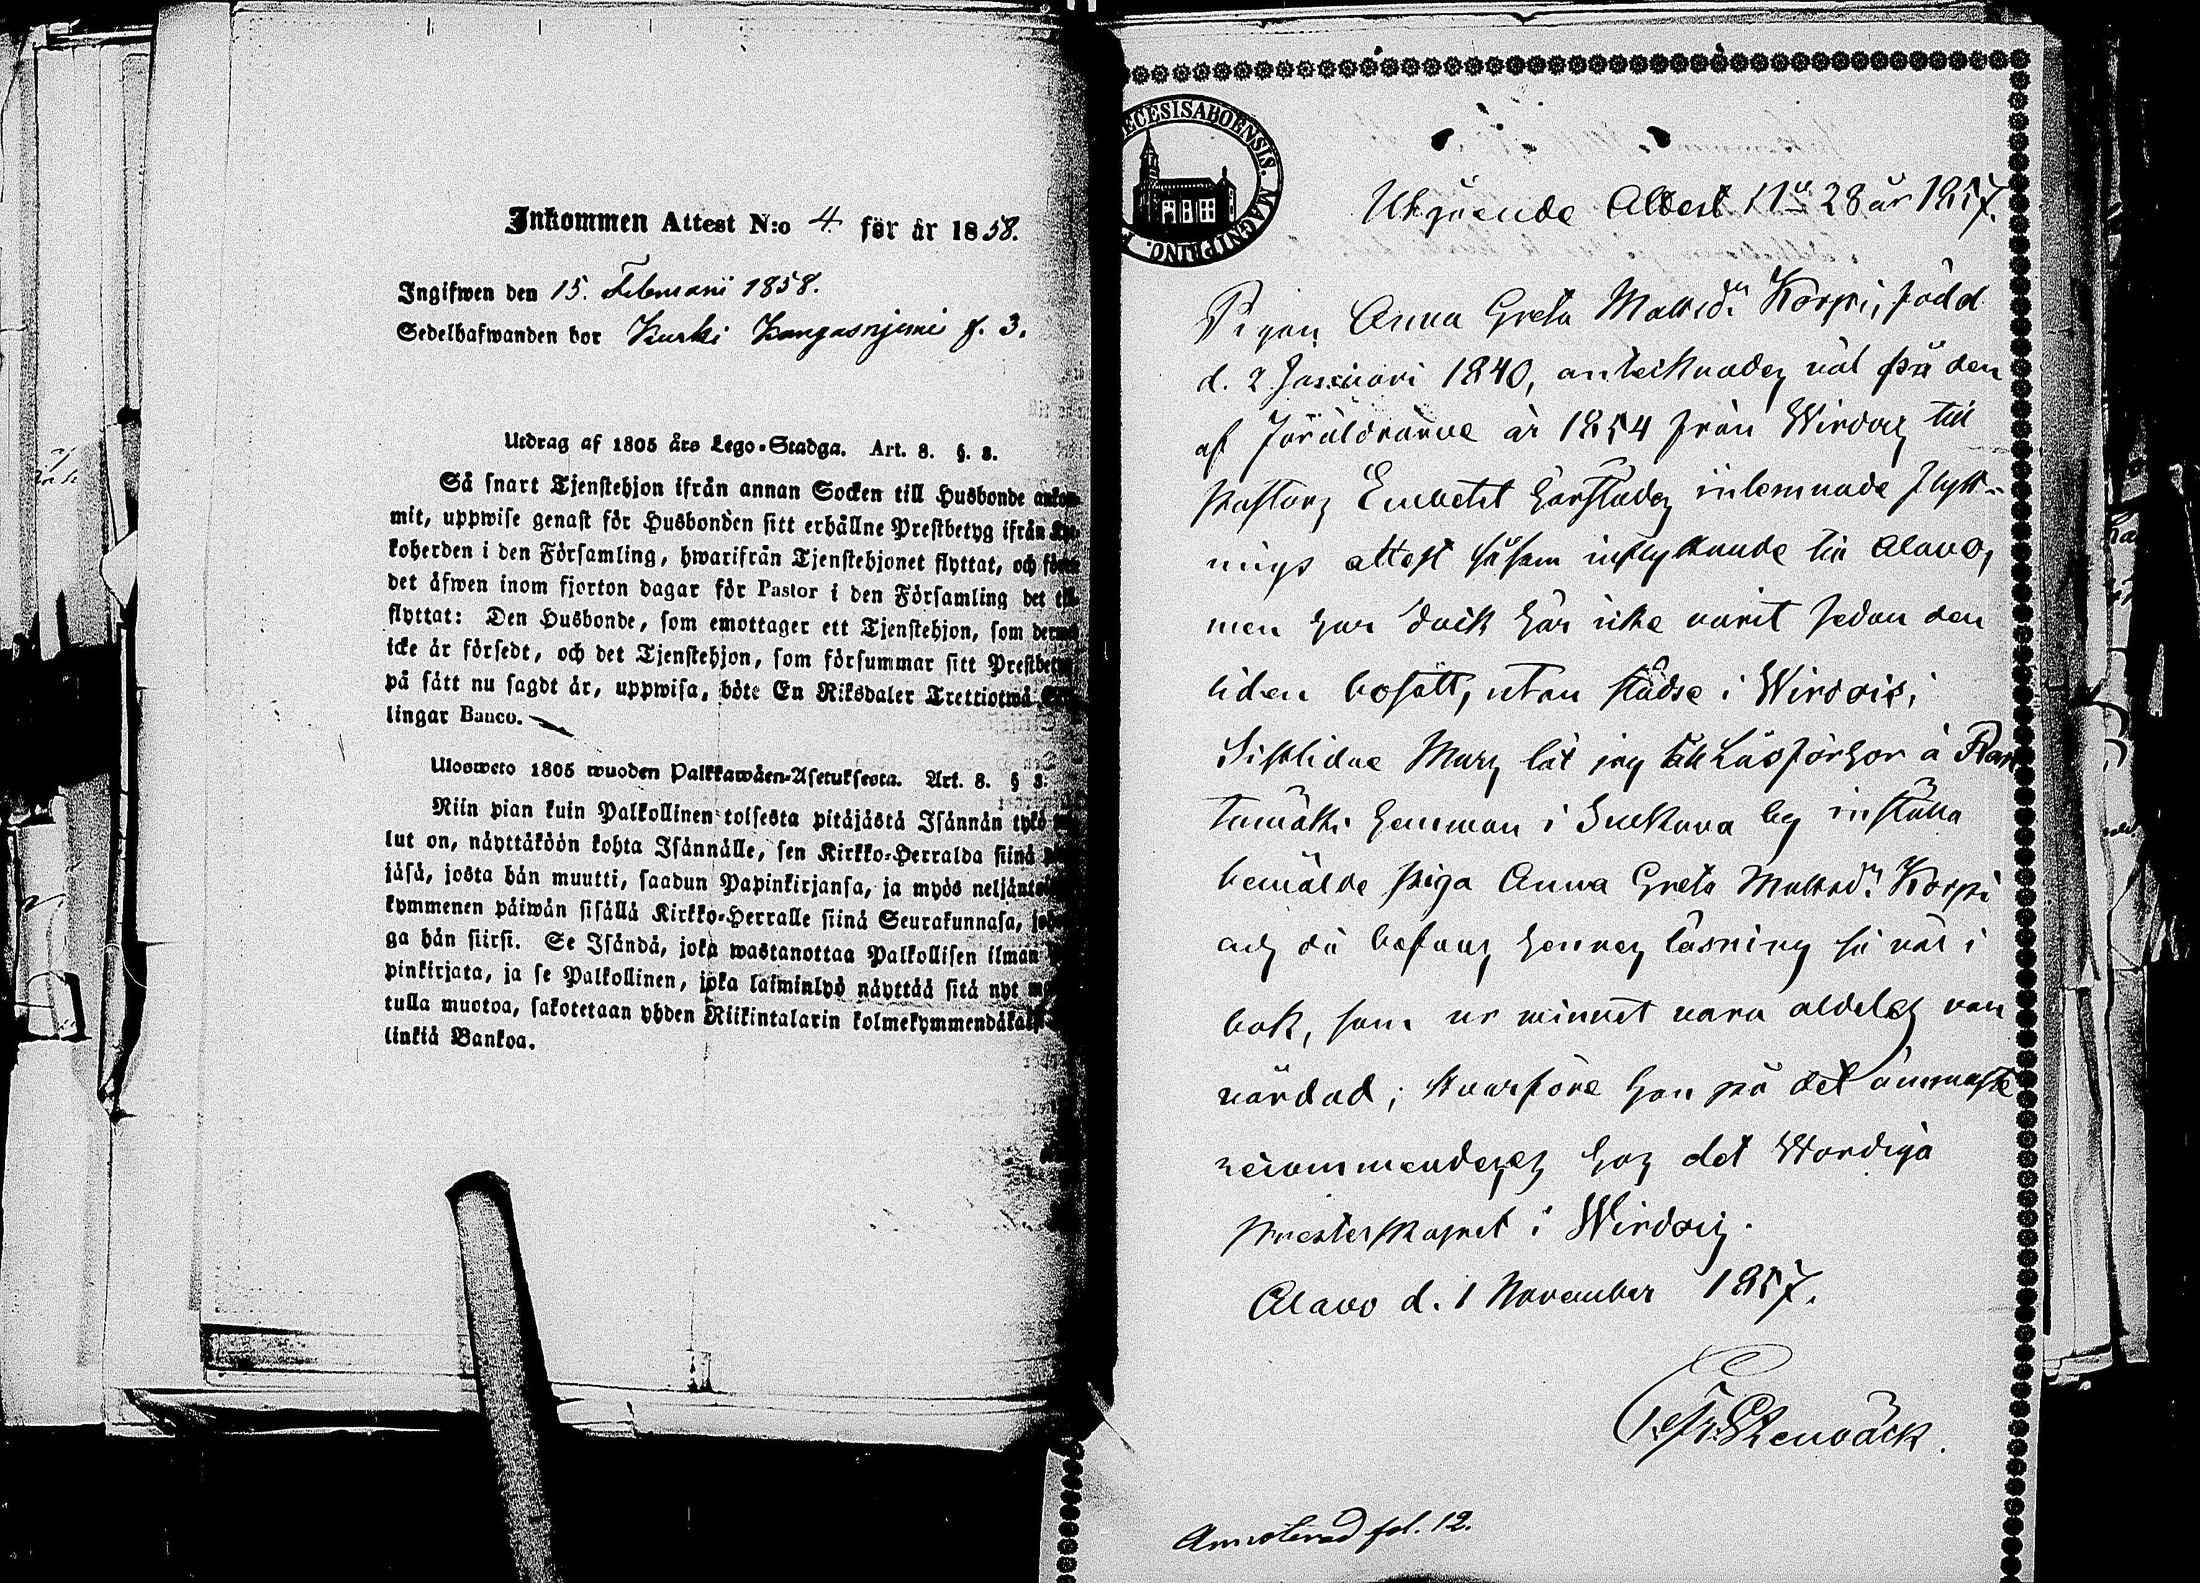 Inkommen Attest N:o 4. för år 1858.
Ingifwen den 15. Februarii 1858.
Sedelhafwanden bor Kurki Kangasnjemi f. 3.
Utdrag af 1805 års Lego-Stadga. Art. 8. §. 8.
Så snart Tjenstehjon ifrån annan Socken till Husbonde ankom-
mit, uppwise genast för Husbonden sitt erhållne Prestbetyg ifrån
koherden i den Församling, hwarifrån Tjenstehjonet flyttat, och
det äfwen inom fjorton dagar för Pastor i den Församling det
flyttat: Den Husbonde, som emottager ett Tjenstehjon, som
icke är försedt, och det Tjenstehjon, som försummar sitt
på sätt nu sagdt är, uppwisa, böte En Riksdaler Trettiotwå
lingar Banco.
Ulosweto 1805 wuoden Palkkawäen-Asetuksesta. Art. 8. § 8.
Niin pian kuin Palkollinen toisesta pitäjästä Isännän tykö
lut on, näyttäköön kohta Isännälle, sen Kirkko-Herralda siinä
jäsä, josta hän muutti, saadun Papinkirjansa, ja myös
kymmenen päiwän sisällä Kirkko-Herralle siinä Seurakunnasa,
ga hän siirsi. Se Isändä, joka wastanottaa Palkollisen ilman
pinkirjata, ja se Palkollinen, joka laiminlyö näyttää sitä nyt
tulla muotoa, sakotetaan yhden Riikintalarin
linkiä Bankoa.
ECESISABOENSIS. MAGNI PRINC.
Utgående Attest N:o 28 år 1857.
Pigan Anna Greta Mattsdr Korpi, född
d. 2 Januari 1840, antecknades väl på den
af Föräldrarne år 1854 från Wirdois till
Pastors Embetet härstädes inlemnade flytt-
nings attest såsom inflyttande till Alavo,
men har dock här icke varit sedan den
tiden bosatt, utan städse i Wirdois;
Sistlidne Mars lät jag till Läsförhör å
hemman i by inställa
bemälde piga Anna Greta Mattsdr Korpi
och då befans hennes läsning så väl i
bok, som ur minnet vara aldeles van
vårdad; hvarföre hon på det ömmaste
recommenderas hos det Wördiga
Presterskapet i Wirdois.
Alavo d. 1 November 1857.
Stenbäck.
Annoterad fol. 12.